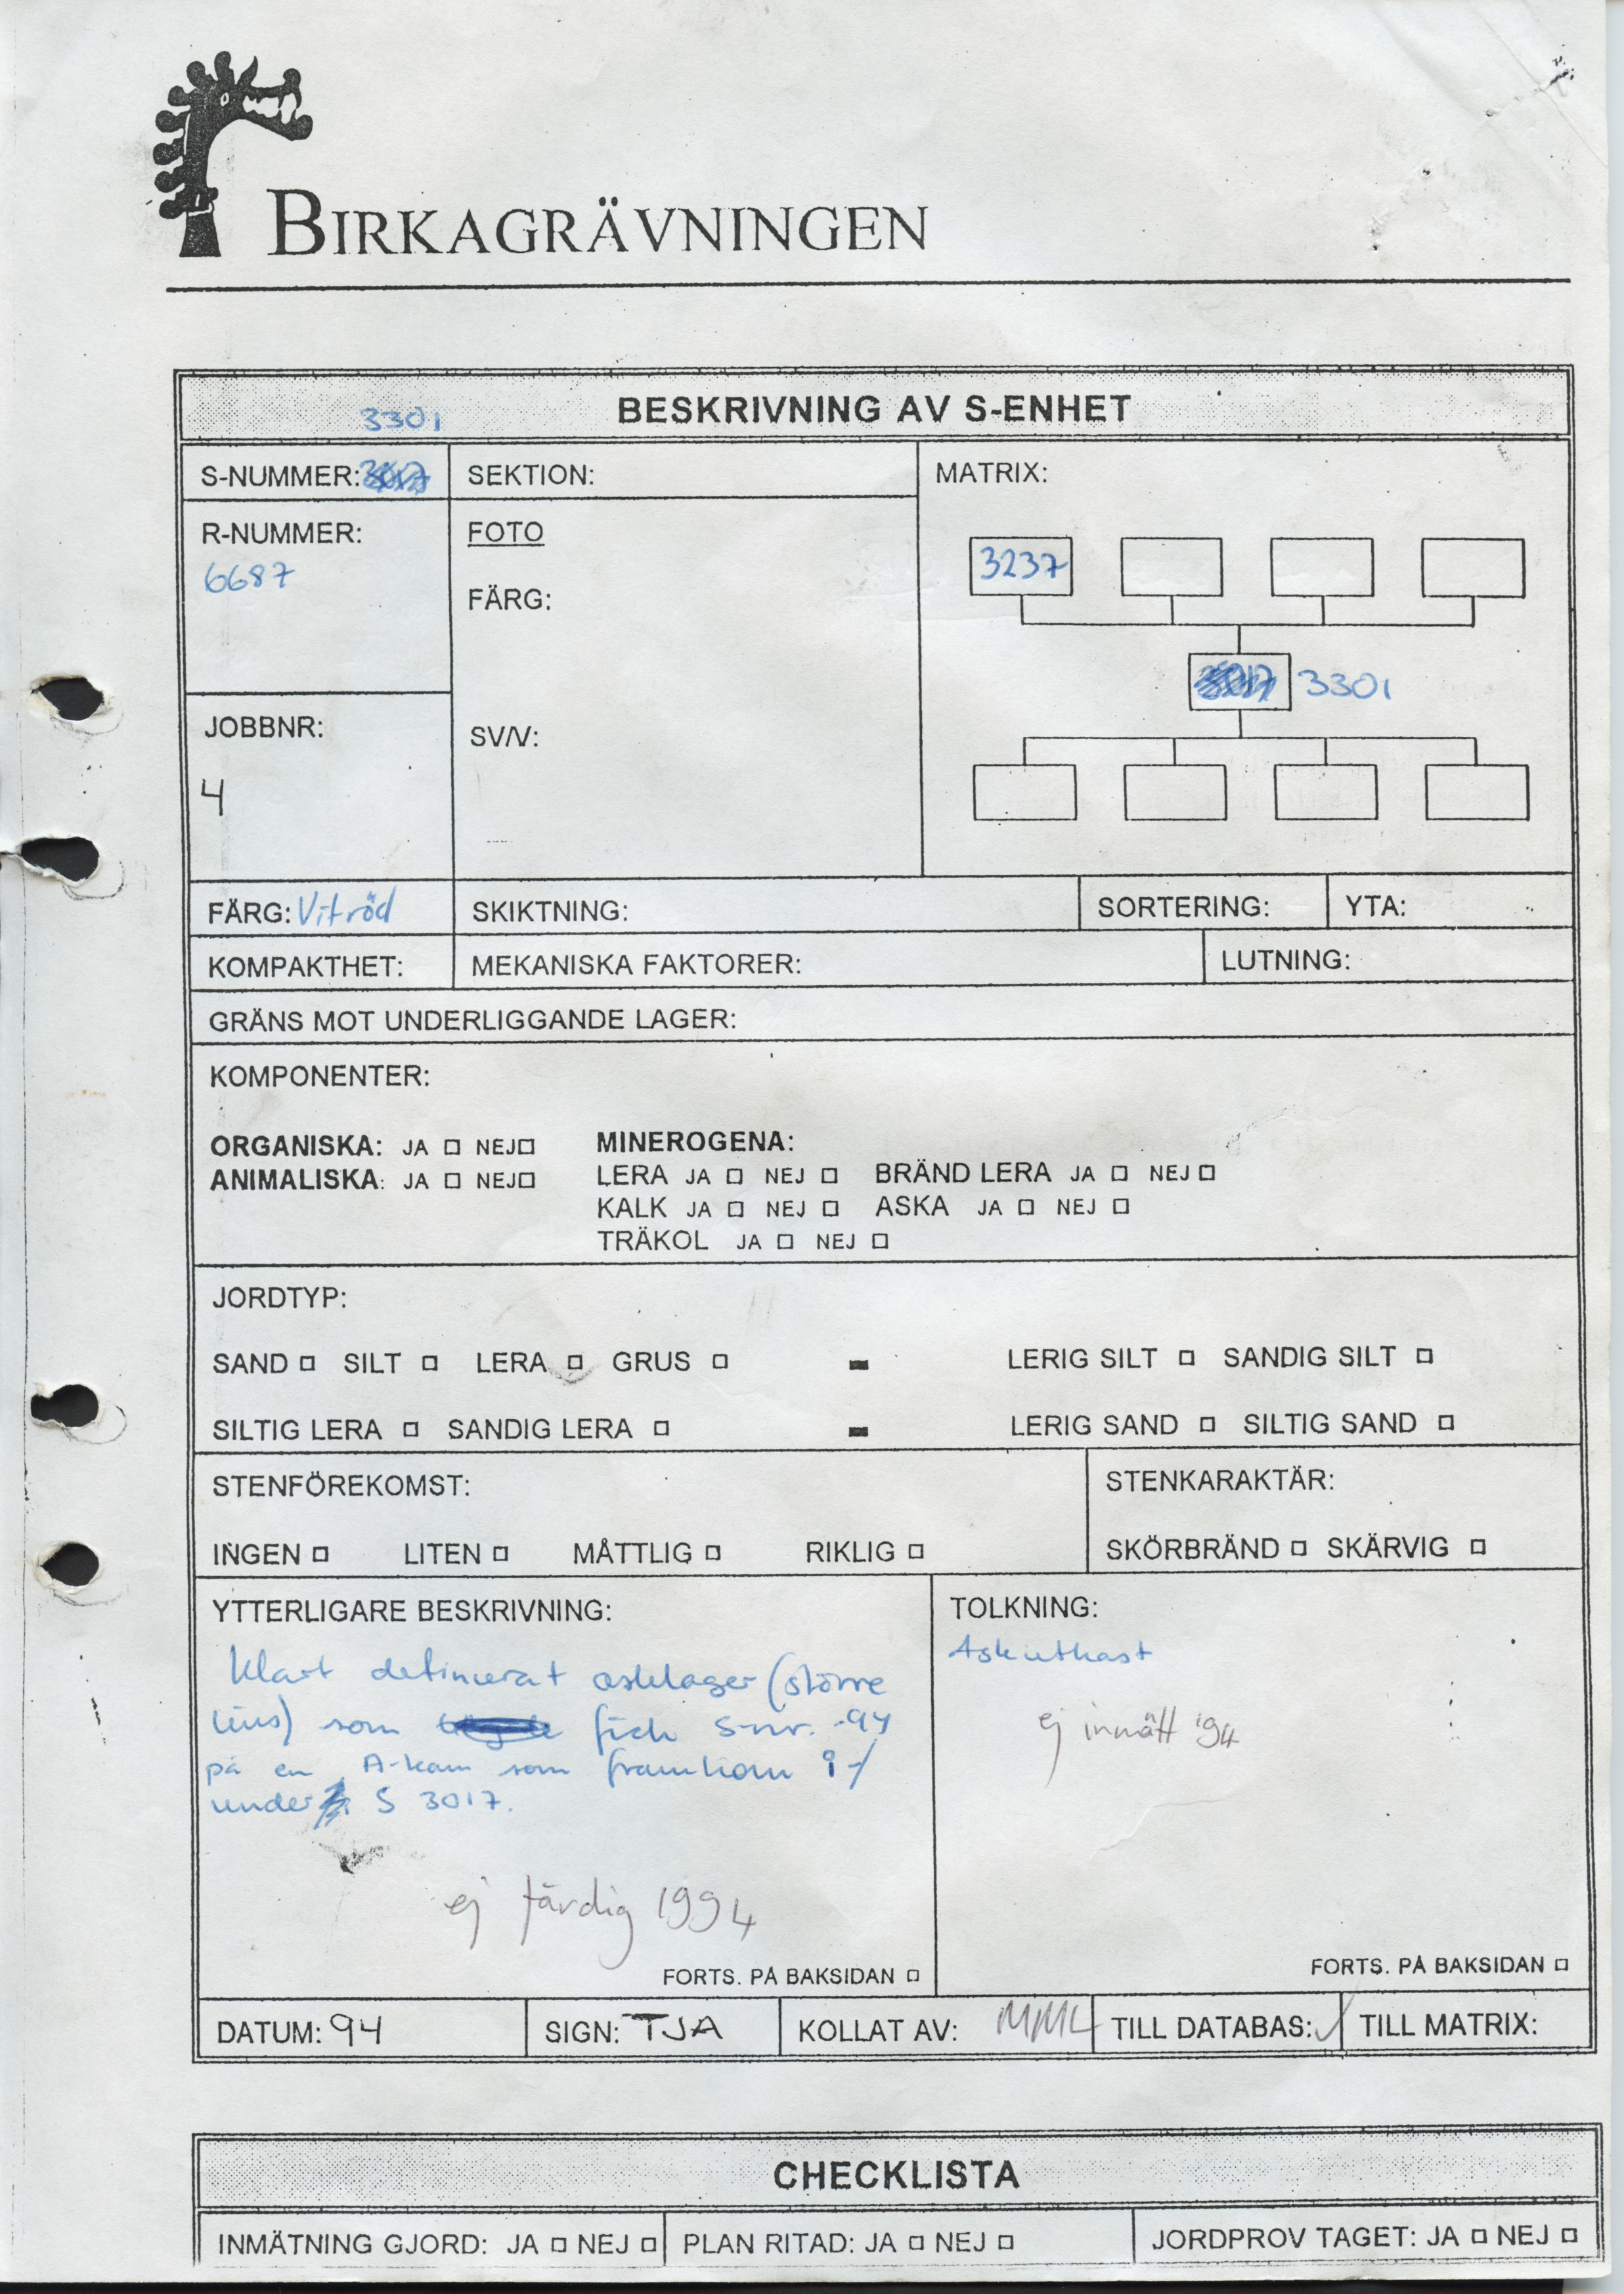 BIRKAGRÄVNINGEN
3301
BESKRIVNING AV S-ENHET
S-NUMMER: 3017
SEKTION:
MATRIX:
R-NUMMER:
6687
FOTO
FÄRG:
SV/V:
3237
3017 3301
JOBBNR:
4
FÄRG: Vitröd
SKIKTNING:
SORTERING:
YTA:
KOMPAKTHET:
MEKANISKA FAKTORER:
LUTNING:
GRÄNS MOT UNDERLIGGANDE LAGER:
KOMPONENTER:
ORGANISKA: JA □ NEJ□
ANIMALISKA: JA □ NEJ□
MINEROGENA:
LERA JA □ NEJ □ BRÄND LERA JA □ NEJ □
KALK JA □ NEJ □ ASKA JA □ NEJ □
TRÄKOL JA □ NEJ □
JORDTYP:
SAND □ SILT □ LERA □ GRUS □ - LERIG SILT □ SANDIG SILT □
SILTIG LERA □ SANDIG LERA □ - LERIG SAND □ SILTIG SAND □
STENFÖREKOMST:
INGEN □ LITEN □ MÅTTLIG □ RIKLIG □
STENKARAKTÄR:
SKÖRBRÄND □ SKÄRVIG □
YTTERLIGARE BESKRIVNING:
Klart definierat asklager (större
lins) som fick S-nr. -94
på en A-kam som framkom i/
under S 3017.
ej färdig 1994
FORTS. PÅ BAKSIDAN □
TOLKNING:
Askutkast
ej inmätt '94
FORTS. PÅ BAKSIDAN □
DATUM: 94
SIGN: TJA
KOLLAT AV: MML
TILL DATABAS: ✓
TILL MATRIX:
CHECKLISTA
INMÄTNING GJORD: JA □ NEJ □
PLAN RITAD: JA □ NEJ □
JORDPROV TAGET: JA □ NEJ □